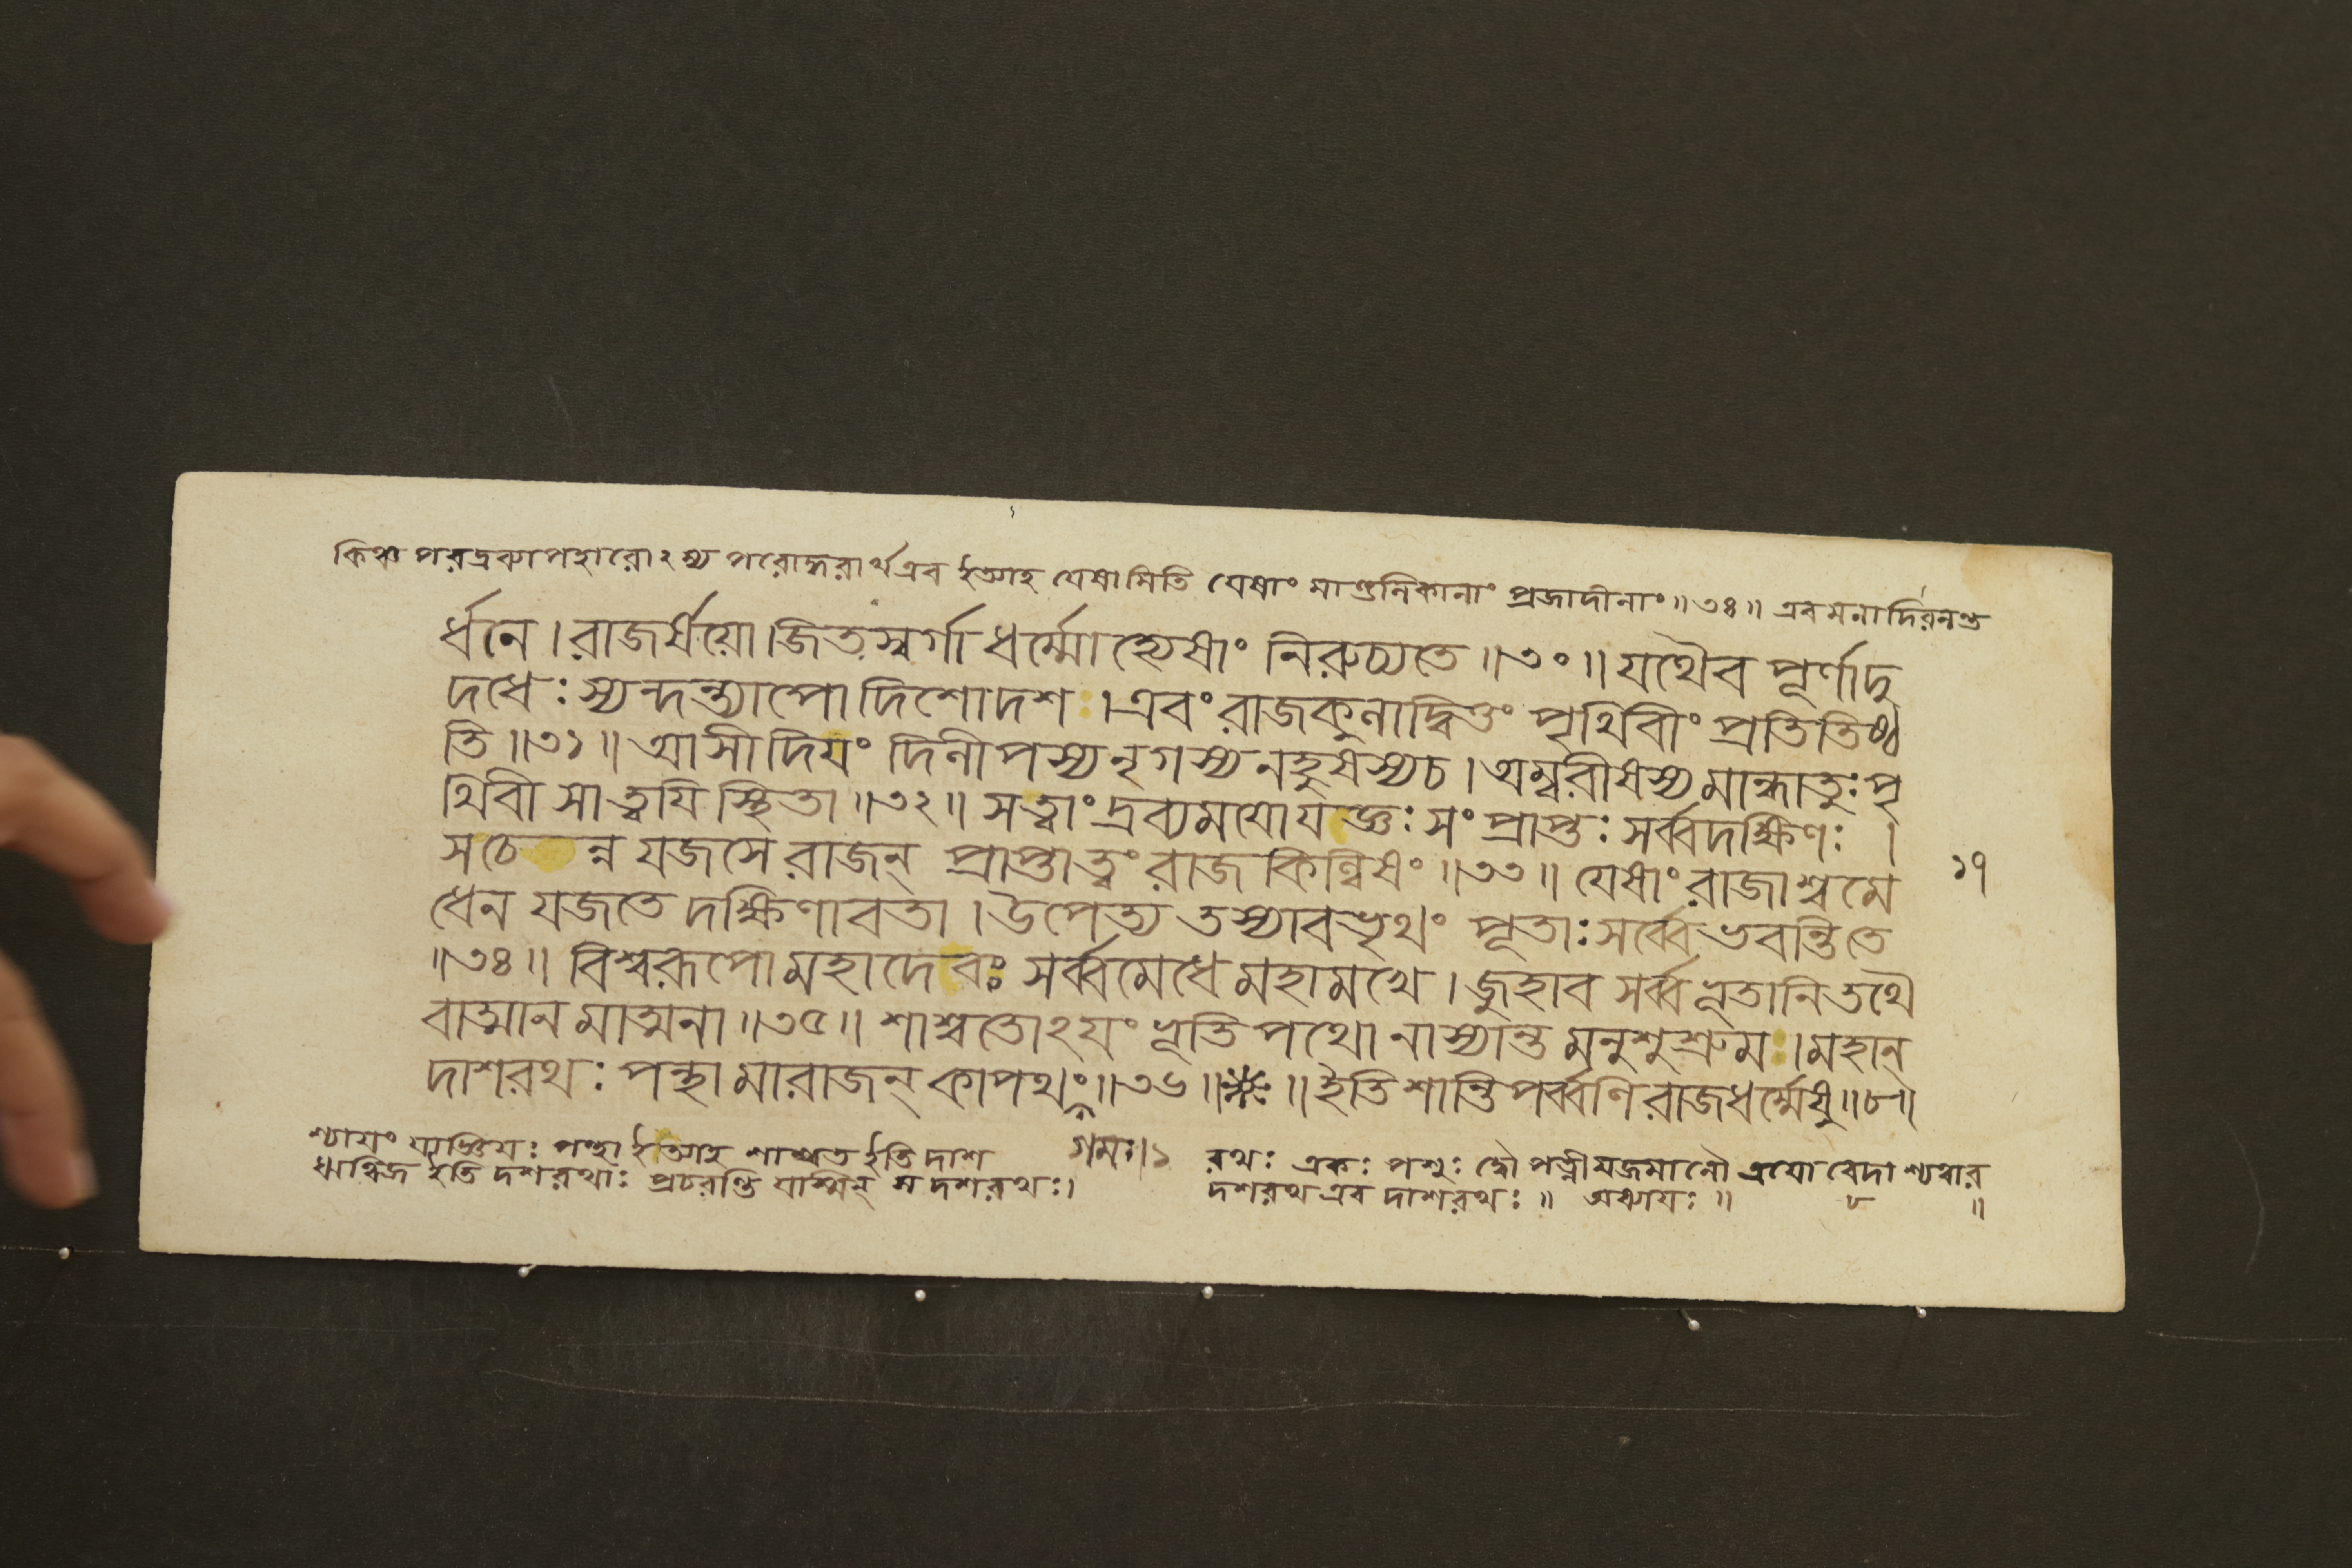 কিঞ্চ পরদ্রব্যাপহারোঽপ্যস্য পরোদ্ধরার্থএব ইত্যাহ যেষামিতি যেষাং মাণ্ডলিকানাং প্রজাদীনাং ॥ ৩৪ ॥ এবমনাদিরনন্ত
র্ধনে । রাজর্ষয়ো । জিতস্বর্গা ধর্ম্মো হ্যেষাং নিরুচ্যতে ॥ ৩০ ॥ যথৈব পূর্ণাদু
দধেঃ স্যন্দন্ত্যাপো দিশোদশ । এবং রাজকুলাদ্বিত্তং পৃথিবীং প্রতিতিষ্ঠ
তি ॥ ৩১ ॥ আসীদিয়ং দিলীপস্য নৃগস্য নহুষস্যচ । অম্বরীষস্য মান্ধাতুঃ পৃ
থিবী সাত্বয়ি স্থিতা ॥ ৩২ ॥ সত্বাং দ্রব্যময়োযজ্ঞঃ সংপ্রাপ্তঃ সর্ব্বদক্ষিণঃ ।
সচেন্ন যজসে রাজন্ প্রাপ্তাত্বং রাজকিল্বিষং ॥ ৩৩ ॥ যেষাং রাজাশ্বমে
ধেন যজতে দক্ষিণাবতা । উপেত্য তস্যাবভৃথং পূতাঃ সর্ব্বে ভবন্তি তে
॥ ৩৪ ॥ বিশ্বরূপো মহাদেবঃ সর্ব্বমেধে মহামখে । জুহাব সর্ব্বভূতানি তথৈ
বাত্মানমাত্মনা ॥ ৩৫ ॥ শাশ্বতোঽয়ং ভূতিপথো নাস্যান্তমনুশুশ্রুমঃ । মহান্
দাশরথঃ পন্থা মারাজন্ কাপথং ॥ ৩৬ ॥ ❋ ॥ ইতি শান্তিপর্ব্বণি রাজধর্ম্মেষু ॥ ৮ ॥
১৭
শ্যায়ং যাজ্ঞিয়ঃ পন্থা ইত্যাহ শাশ্বত ইতি দাশ
গমঃ । ১
রথঃ একঃ পশুঃ দ্বৌ পত্নীযজমানৌ ত্রয়ো বেদাশ্চত্বার
ঋত্বিজ ইতি দশরথাঃ প্রচরন্তি যস্মিন্ স দশরথঃ ।
দশরথ এব দাশরথঃ ॥ অধ্যায়ঃ ॥ ৮ ॥